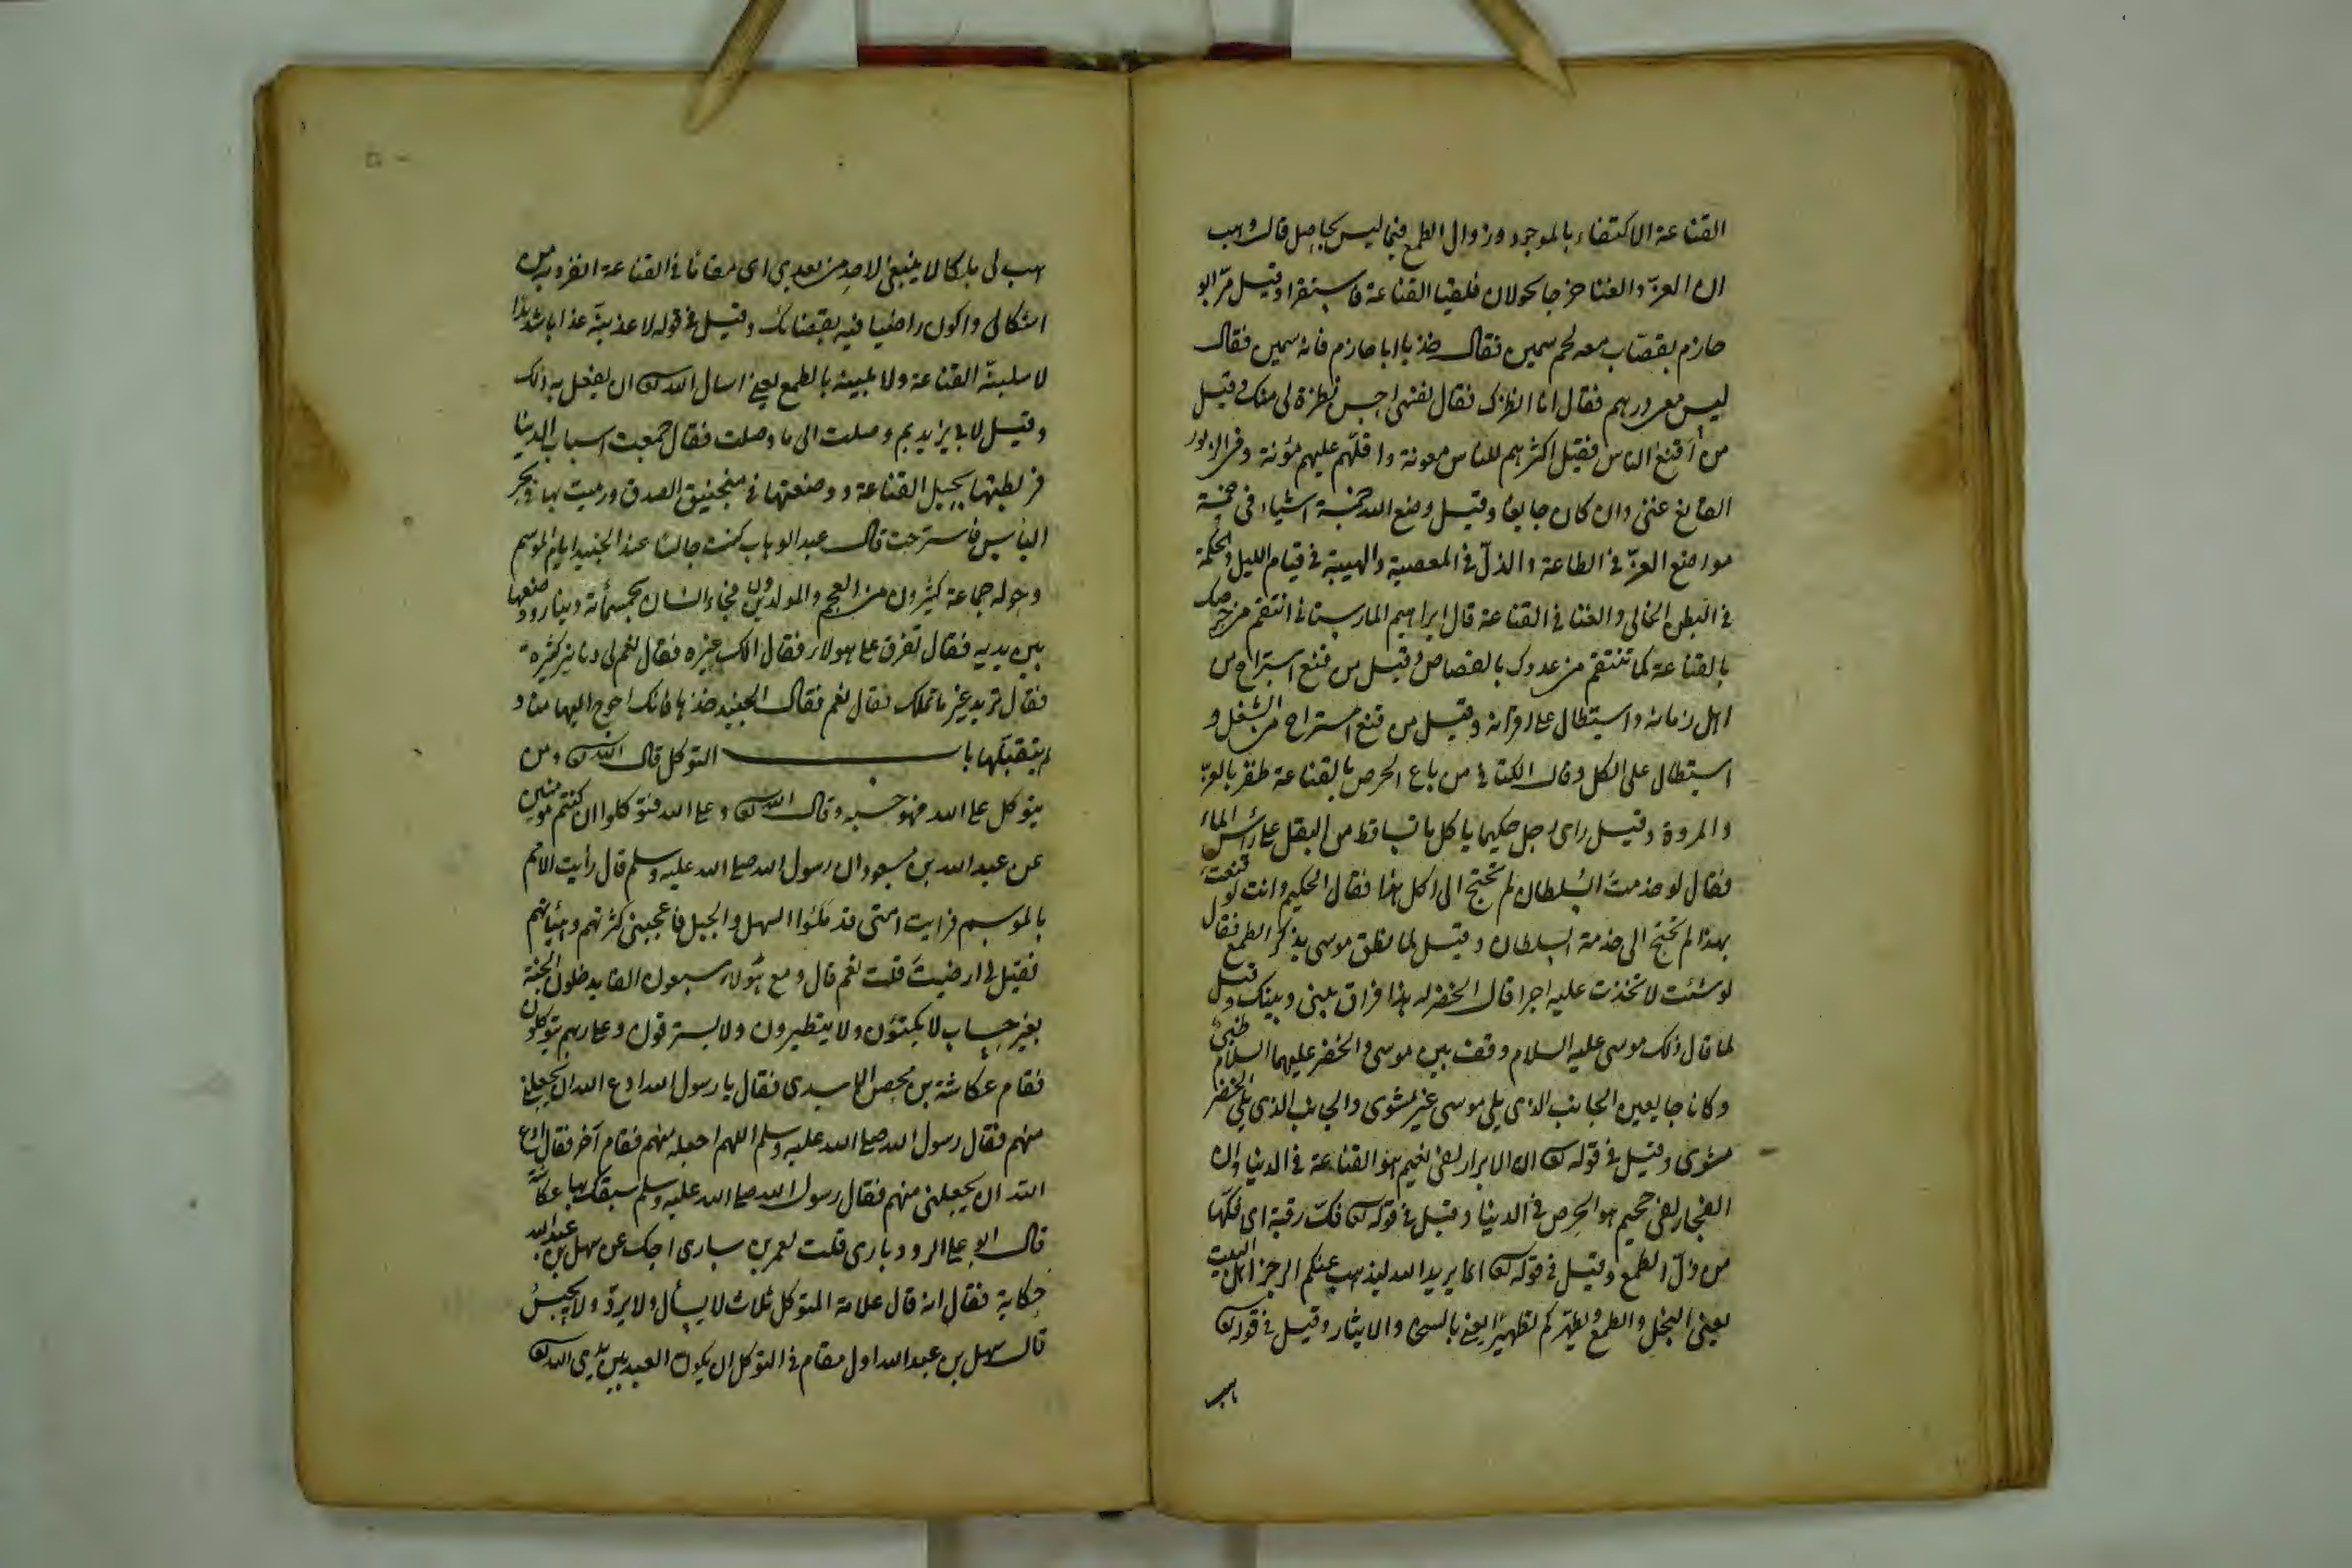 القناعة الاكتفاء بالموجود وزوال الطمع فيما ليس بحاصل قال وهب
ان العز والغنا خرجا يجولان فلقيا القناعة فاستقرا وقيل مرّ ابو
حازم بقصّاب معه لحم سمين فقال خذ يا ابا حازم فانه سمين فقال
ليس معي درهم فقال انا انظرك فقال نفسي احسن نظرة لي منك وقيل
من اقنع الناس فقيل اكثرهم للناس معونة واقلّهم عليهم مؤنة وفي الزبور
القانع غني وان كان جايعا وقيل وضع الله خمسة اشياء في خمسة
مواضع العزّ في الطاعة والذلّ في المعصية والهيبة في قيام الليل والحكمة
في البطن الخالي والغنا في القناعة قال ابراهيم المارستاني انتقم من حرصك
بالقناعة كما تنتقم من عدوك بالقصاص وقيل من قنع استراح من
اهل زمانه واستطال على اقرانه وقيل من قنع استراح من الشغل و
استطال على الكل وقال الكتاني من باع الحرص بالقناعة ظفر بالعزّ
والمروة وقيل راى رجل حكيما ياكل ما تساقط من البقل على رأس الماء
فقال لو خدمت السلطان لم تحتج الى اكل هذا فقال الحكيم وانت لو قنعت
بهذا لم تحتج الى خدمة السلطان وقيل لما نطق موسى بذكر الطمع فقال
لو شئت لاتخذت عليه اجرا قال الخضر له هذا فراق بيني وبينك وقيل
لما قال ذلك موسى عليه السلام وقف بين موسى والخضر عليهما السلام ظبي
وكانا جايعين الجانب الذي يلي موسى غير مشوى والجانب الذي يلي الخضر
مشوى وقيل في قوله تعالى ان الابرار لفي نعيم هو القناعة في الدنيا وان
الفجار لفي جحيم هو الحرص في الدنيا وقيل في قوله تعالى فكّ رقبة اى فكّها
من ذلّ الطمع وقيل في قوله تعالى انما يريد الله ليذهب عنكم الرجز اهل البيت
يعني البخل والطمع ويطهّركم تطهيرا يعني بالسخاء والايثار وقيل في قوله تعالى
هب لي ملكا لا ينبغي لاحد من بعدي اى مقاما في القناعة انفرد به من
اشكالي واكون راضيا فيه بقضائك وقيل في قوله لاعذبنّه عذابا شديدا
لاسلبنّه القناعة ولا بلينه بالطمع يعني اسال الله تعالى ان يفعل به ذلك
وقيل لابي يزيد بم وصلت الى ما وصلت فقال جمعت اسباب الدنيا
فربطتها بحبل القناعة ووضعتها في منجنيق الصدق ورميت بها في بحر
الياس فاسترحت قال عبد الوهاب كنت جالسا عند الجنيد ايام الموسم
وحوله جماعة كثيرون من العجم والمولدين فجاء انسان بخمسمأئة دينار ووضعها
بين يديه فقال تفرق على هولاء فقال الك غيره فقال نعم لي دنانير كثيرة
فقال تريد غير ما تملك فقال نعم فقال الجنيد خذها فانك احوج اليها منا و
لم يتقبلها باب التوكل قال الله تعالى ومن
يتوكل على الله فهو حسبه وقال الله تعالى وعلى الله فتوكلوا ان كنتم مومنين
عن عبد الله بن مسعود ان رسول الله صلى الله عليه وسلم قال رأيت الامم
بالموسم فرايت امتي قد ملئوا السهل والجبل فاعجبني كثرتهم وهيأتهم
فقيل لي ارضيت قلت نعم قال ومع هؤلاء سبعون الفا يدخلون الجنة
بغير حساب لا يكتوون ولا يتطيرون ولا يسترقون وعلى ربهم يتوكلون
فقام عكاشة بن محصن الاسدي فقال يا رسول الله ادع الله ان يجعلني
منهم فقال رسول الله صلى الله عليه وسلم اللهم اجعله منهم فقام آخر فقال ادع
الله ان يجعلني منهم فقال رسول الله صلى الله عليه وسلم سبقك بها عكاشة
قال ابو علي الرودباري قلت لعمر بن سنان احك عن سهل بن عبد الله
حكاية فقال انه قال علامة المتوكل ثلاث لا يسأل ولا يردّ ولا يحبس
قال سهل بن عبد الله اول مقام في التوكل ان يكون العبد بين يدي الله تعالى